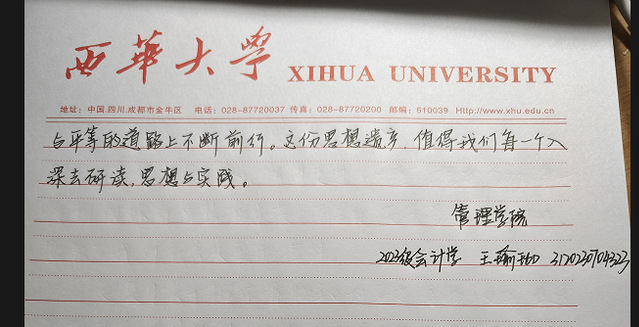 西華大學 XIHUA UNIVERSITY
地址：中国.四川.成都市金牛区 电话：028-87720037 传真：028-87720200 邮编：610039 Http://www.xhu.edu.cn
与平等的道路上不断前行。这份思想遗产，值得我们每一个人
深去研读，思想与实践。
管理学院
2023级会计学 王瑜 3120230704323